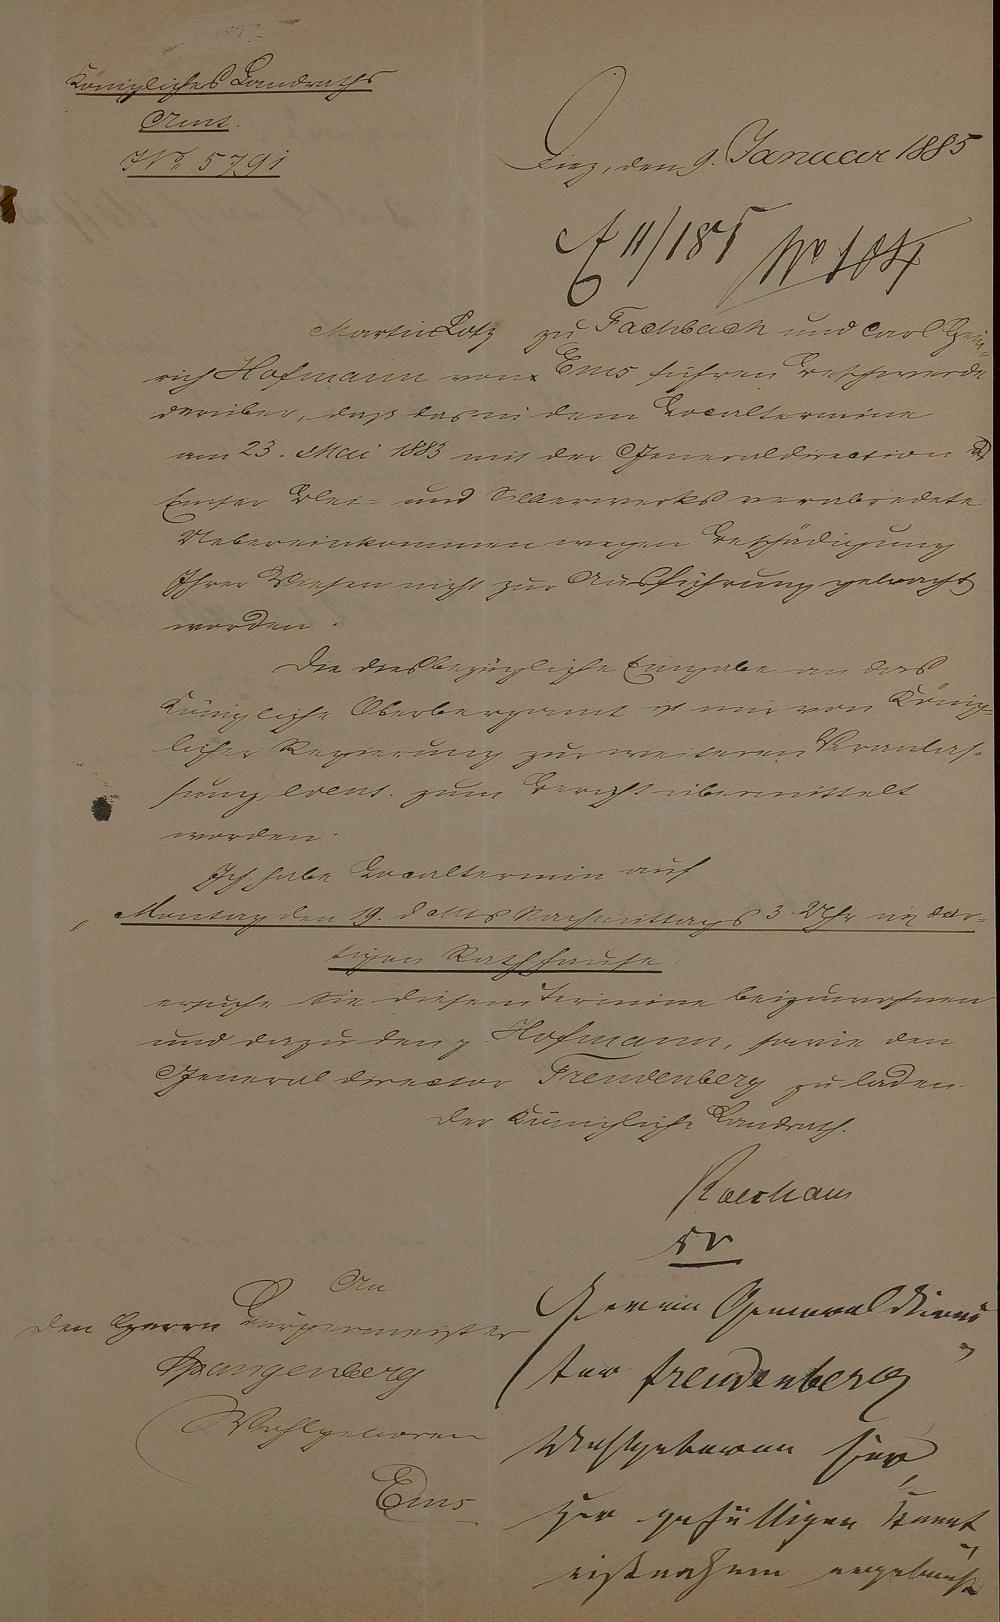 Königliches Landraths
Amt.
J.Nº 5791
Diez, den 9. Januar 1885
E 11/1 85 Nº 184
Martin Lotz zu Fachbach und Carl Hein-
rich Hofmann von Ems führen Beschwerde
darüber, daß das in dem Localtermine
am 23. Mai 1883 mit der Generaldirection des
Emser Blei- und Silberwerks verabredete
Uebereinkommen wegen Beschädigung
Ihrer Wiesen nicht zur Ausführung gebracht
worden.
Die diesbezügliche Eingabe an das
Königliche Oberbergamt ist mir von König-
licher Regierung zur weiteren Veranlas-
sung, event. zum Bericht übermittelt
worden.
Ich habe Localtermin auf
Montag den 19. d Mts Nachmittags 3 Uhr im dor-
tigen Rathhause
ersuche Sie diesem Termine beizuwohnen
und dazu den p Hofmann, sowie den
Generaldirector Freudenberg zu laden.
Der Königliche Landrath.
An
den Herrn Bürgermeister
Spangenberg
Wohlgeboren
Ems
Herrn Generaldirec
tor Freudenberg
Wohlgeboren hier
zur gefälligen Kennt
nißnahme ergebenst